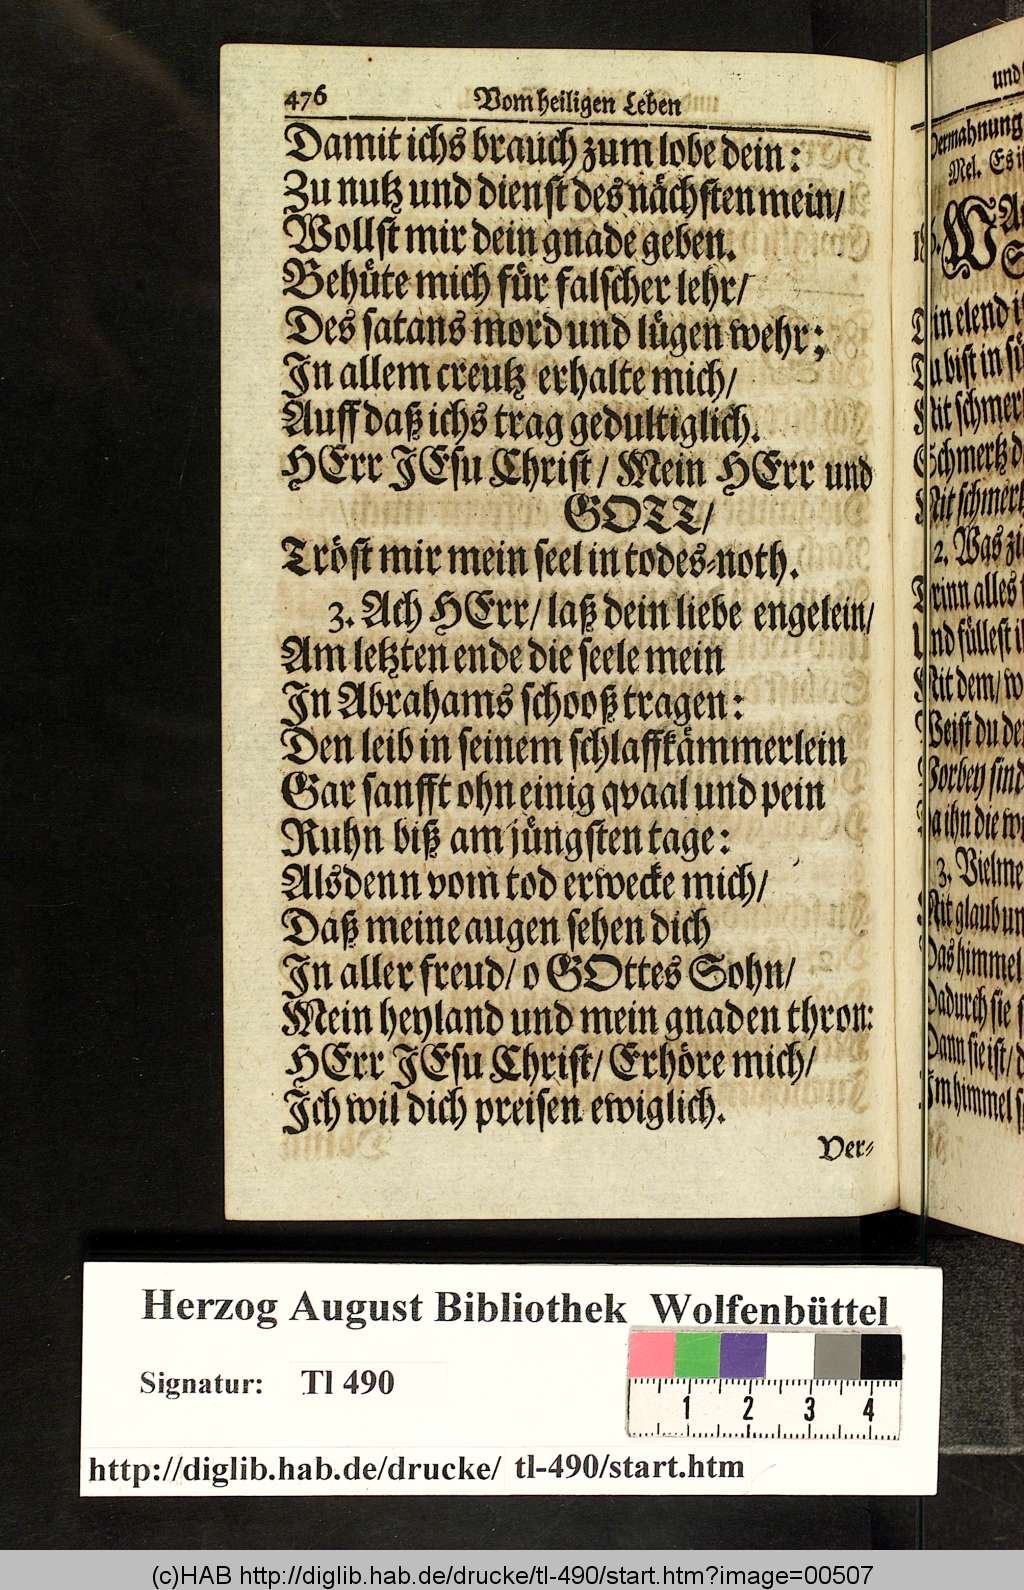 476 Vom heiligen Leben
Damit ichs brauch zum lobe dein:
Zu nutz und dienst des nächsten mein/
Wollst mir dein gnade geben.
Behüte mich für falscher lehr/
Des satans mord und lügen wehr;
In allem creutz erhalte mich/
Auff daß ichs trag gedultiglich.
HErr JEsu Christ/ Mein HErr und
GOTT/
Tröst mir mein seel in todes-noth.
3. Ach HErr/ laß dein liebe engelein/
Am letzten ende die seele mein
In Abrahams schooß tragen:
Den leib in seinem schlaffkämmerlein
Gar sanfft ohn einig qvaal und pein
Ruhn biß am jüngsten tage:
Alsdenn vom tod erwecke mich/
Daß meine augen sehen dich
In aller freud/ o GOttes Sohn/
Mein heyland und mein gnaden thron:
HErr JEsu Christ/ Erhöre mich/
Ich wil dich preisen ewiglich.
Ver-
und
Vermahnung
Mel. Es
elend
bist in
schmer
Schmertz
Mit schmer
2. Was
alles
füllest
Mit dem/
Weist du
Vorbey sind
ihn die
3. Vielme
Mit glaub
Das himmel
Dadurch sie
Dann sie ist/
Im himmel
Herzog August Bibliothek Wolfenbüttel
Signatur: Tl 490
1 2 3 4
http://diglib.hab.de/drucke/ tl-490/start.htm
(c)HAB http://diglib.hab.de/drucke/tl-490/start.htm?image=00507